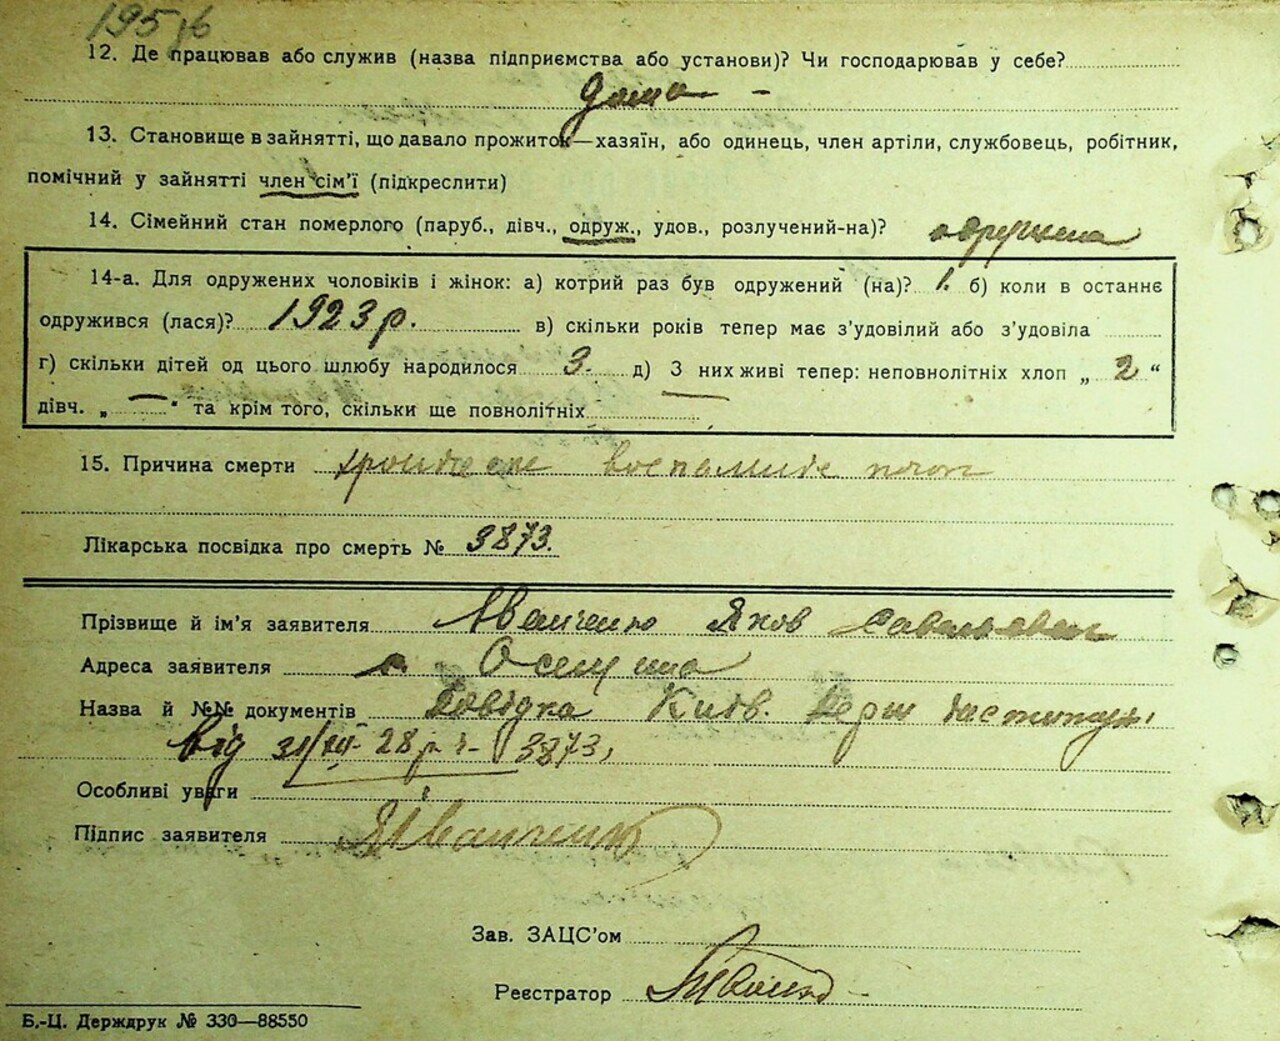 195
12. Де працював або служив (назва підприємства або установи)? Чи господарював у себе?
дома –
13. Становище в зайнятті, що давало прожиток—хазяїн, або одинець, член артілі, службовець, робітник,
помічний у зайнятті член сім’ї (підкреслити)
14. Сімейний стан померлого (паруб., дівч., одруж., удов., розлучений-на)? одружена
14-а. Для одружених чоловіків і жінок: а) котрий раз був одружений (на)? 1. б) коли в останнє
одружився (лася)? 1923 р. в) скільки років тепер має з’удовілий або з’удовіла
г) скільки дітей од цього шлюбу народилося 3. д) З них живі тепер: неповнолітніх хлоп „ 2 “
дівч. „ — “ та крім того, скільки ще повнолітніх
15. Причина смерти
Лікарська посвідка про смерть № 3873.
Прізвище й ім’я заявителя Іванченко Яков Савельевич
Адреса заявителя с.
Назва й №№ документів Довідка Київ.
від 31/VII-28 р. 3873,
Особливі уваги
Підпис заявителя ЯІванченко
Зав. ЗАЦС’ом
Реєстратор
Б.-Ц. Держдрук № 330—88550